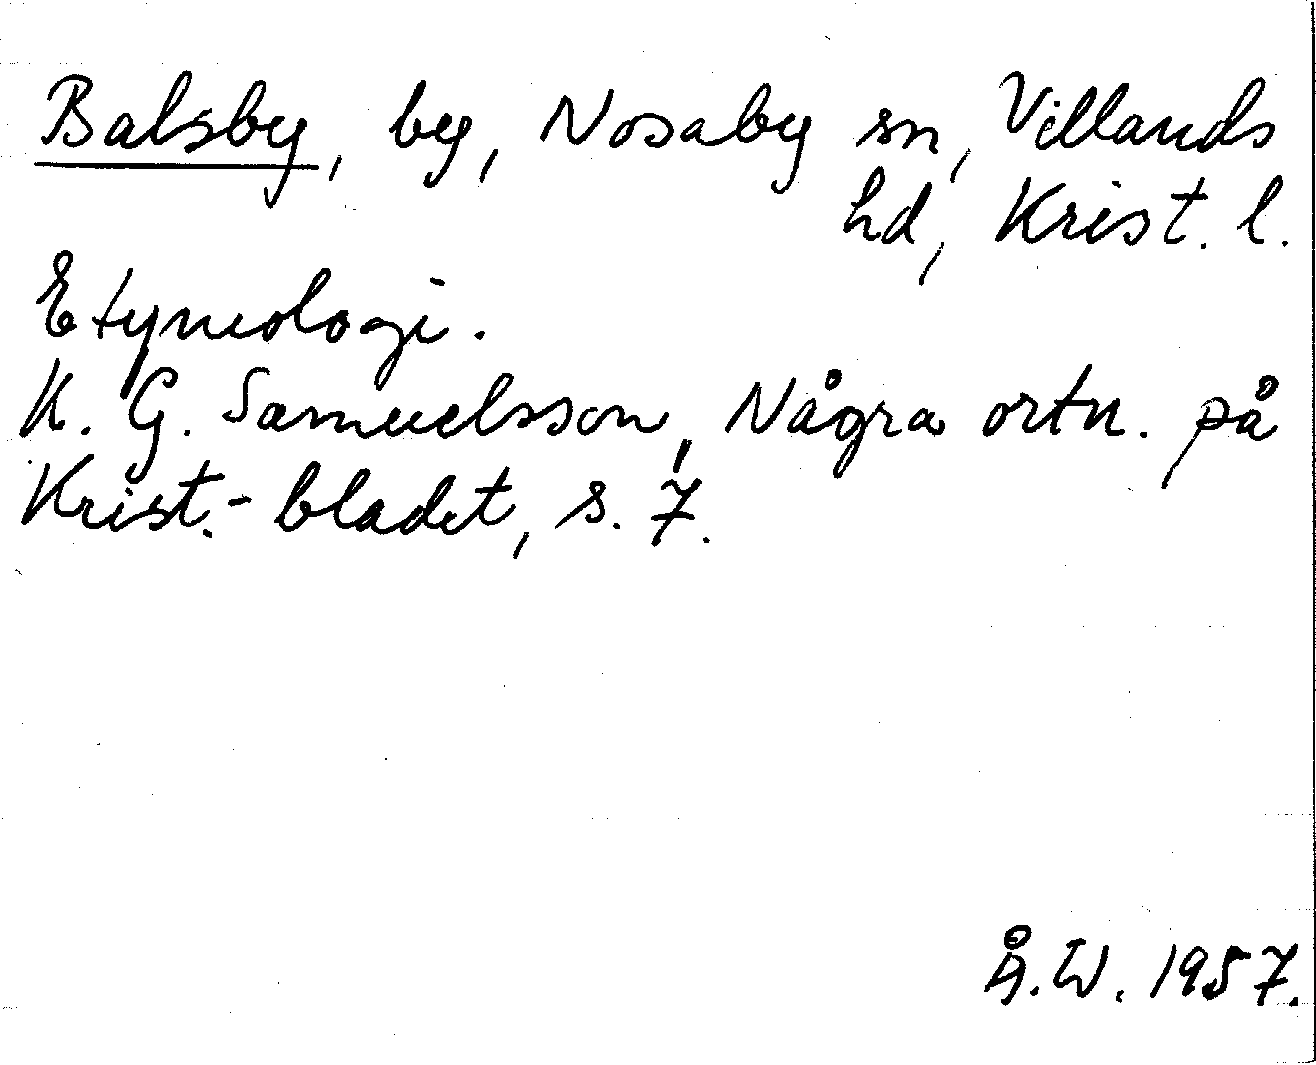 Balsby, by, Nosaby sn, Villands
hd, Krist. l.
Etymologi.
K. G. Samuelsson, Några ortn. på
Krist.-bladet, s. 7.
Å.W. 1957.